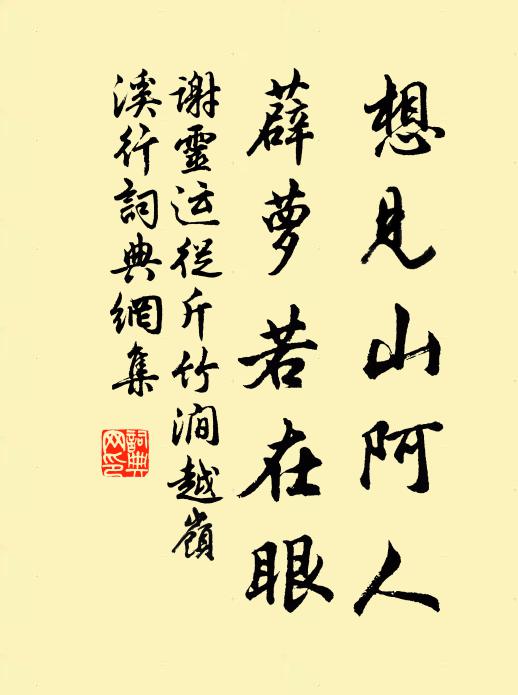 想見山阿人
薜萝若在眼
謝靈运從斤竹澗越嶺
溪行詞典網集
詞典
网印